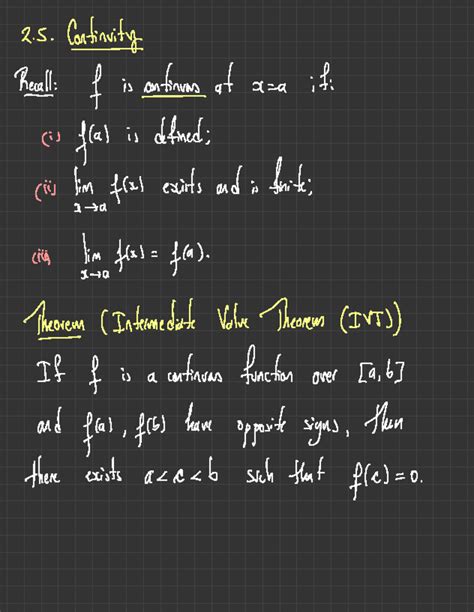 2.5. Continuity
Recall: f is continuous at x=a if:
(i) f(a) is defined;
(ii) lim f(x) exists and is finite;
x→a
(iii) lim f(x) = f(a).
x→a
Theorem (Intermediate Value Theorem (IVT))
If f is a continuous function over [a,b]
and f(a), f(b) have opposite signs, then
there exists a<c<b such that f(c)=0.